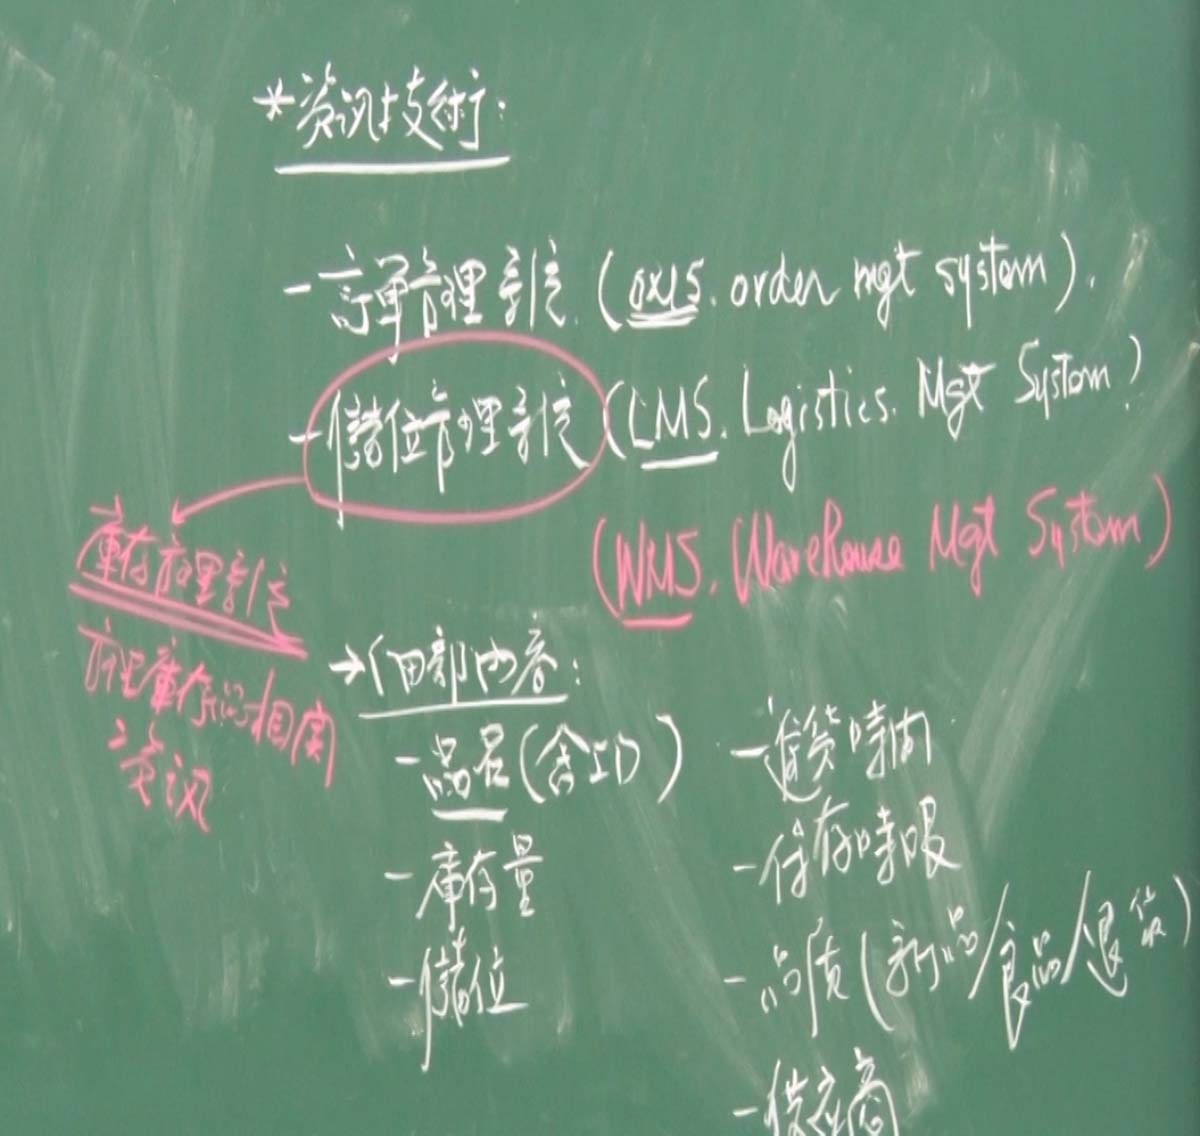 *資訊技術:
-訂單管理系統 (OMS. order mgt system).
-儲位管理系統 (LMS. Logistics. Mgt System)
(WMS. Warehouse Mgt System)
庫存管理系統
管理庫存的相關
資訊
→細部內容:
-品名(含ID)
-庫存量
-儲位
-進貨時間
-保存時限
-品質(新品/良品/退貨)
-供應商